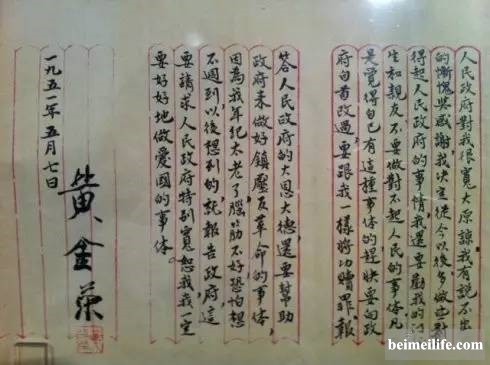 人民政府對我很寬大原諒我有說不出
的慚愧與感謝我決定從今以後多做些對
得起人民政府的事情我還要勸我的门
生和親友不要做對不起人民的事体凡
是覺得自已有這種事体的趕快要向政
府自首改過要跟我一樣將功贖罪報
答人民政府的大恩大德還要幫助
政府來做好鎮壓反革命的事体,
因為我年紀太老了腦筋不好恐怕想
不週到以後想到的就報告政府這
要請求人民政府特別寬恕我我一定
要好好地做愛國的事体
一九五一年五月七日
黃金榮
beimeilife.com